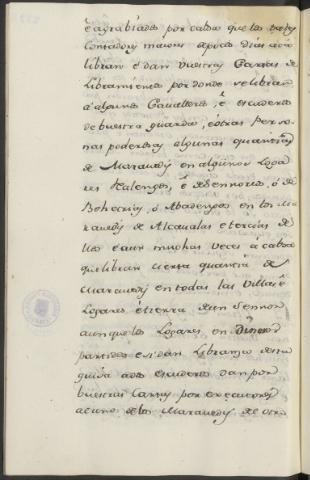 é agrabiados por causa que los
Contadores maiores de pocos dias acá
libran é dan vuestras Cartas de
Libramientos por donde se libran
á algunos Caualleros, é escuderos
de buestra guarda, é otras Perso
nas poderosas algunas quantias
de Maravedis en algunos Loga
res Realengos, é de Sennorios, ó de
Behetrias, ó Abadengos en los Ma
ravedis de Alcavalas é tercias de
llos é aun muchas veces acahece
que libran cierta quantia de
Maravedis en todas las Villas é
Logares, é tierra de un Sennor
aunque los Logares, en
partidos é si dan Librança
guisa a dos escuderos dan por
buestras Cartas por executores
a cuno de los Maravedis de otro